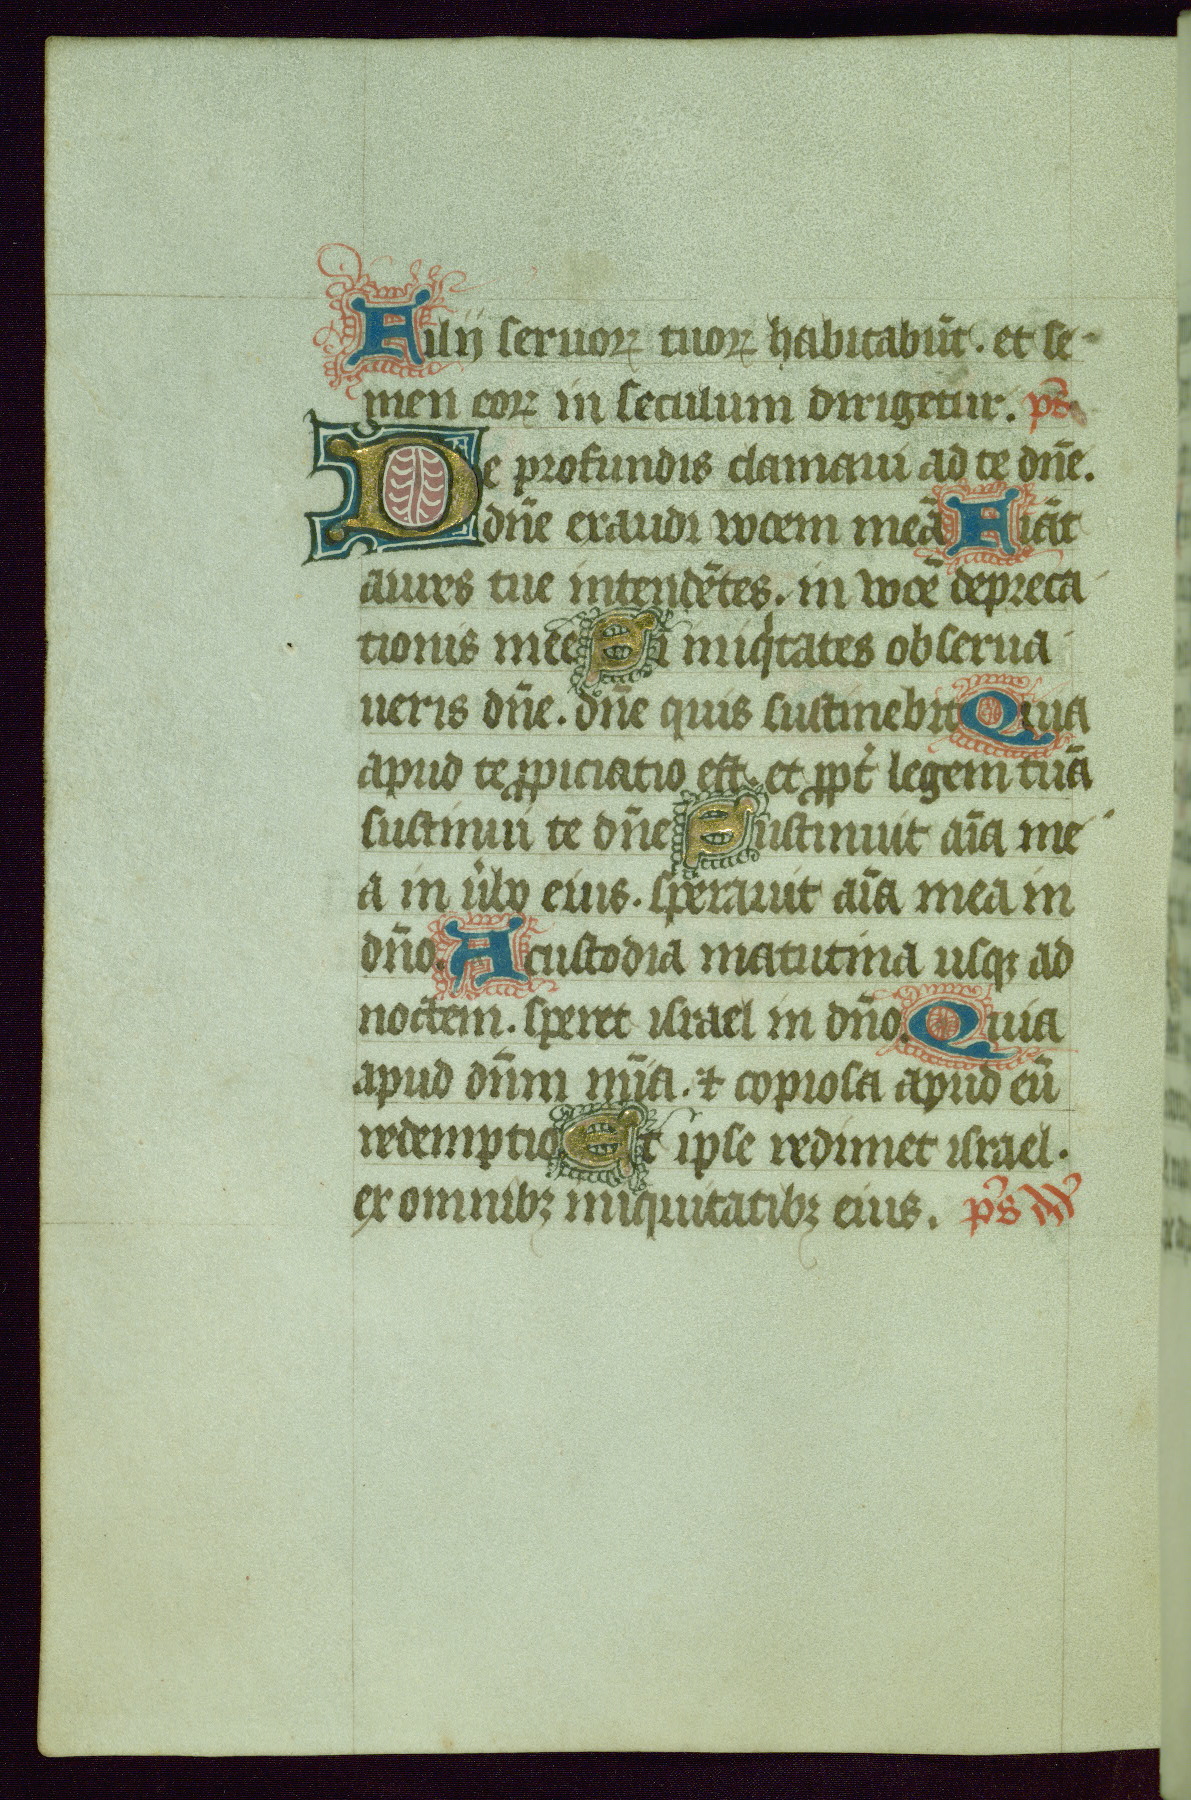 Filij seruoꝝ tuoꝝ habitabūt. et se-
men eoꝝ in seculum dirigetur. ps̄
De profundis clamaui ad te dn̄e.
dn̄e exaudi vocem meā Fiāt
aures tue intendētes. in vocē depreca
tionis mee Si iniqͥtates obserua
ueris dn̄e. dn̄e quis sustinebit Quia
apud te ꝓpiciatio est. et ꝓpt̄ legem tuā
sustinui te dn̄e Sustinuit aīa me
a in v̄bo eius. sperauit aīa mea in
dn̄o. A custodia matutina usqꝫ ad
noctem. speret israel in dn̄o. Quia
apud dn̄m mīa. ⁊ copiosa apud eū
redemptio Et ipse redimet israel.
ex omnibꝫ iniquitatibꝫ eius. ps̄